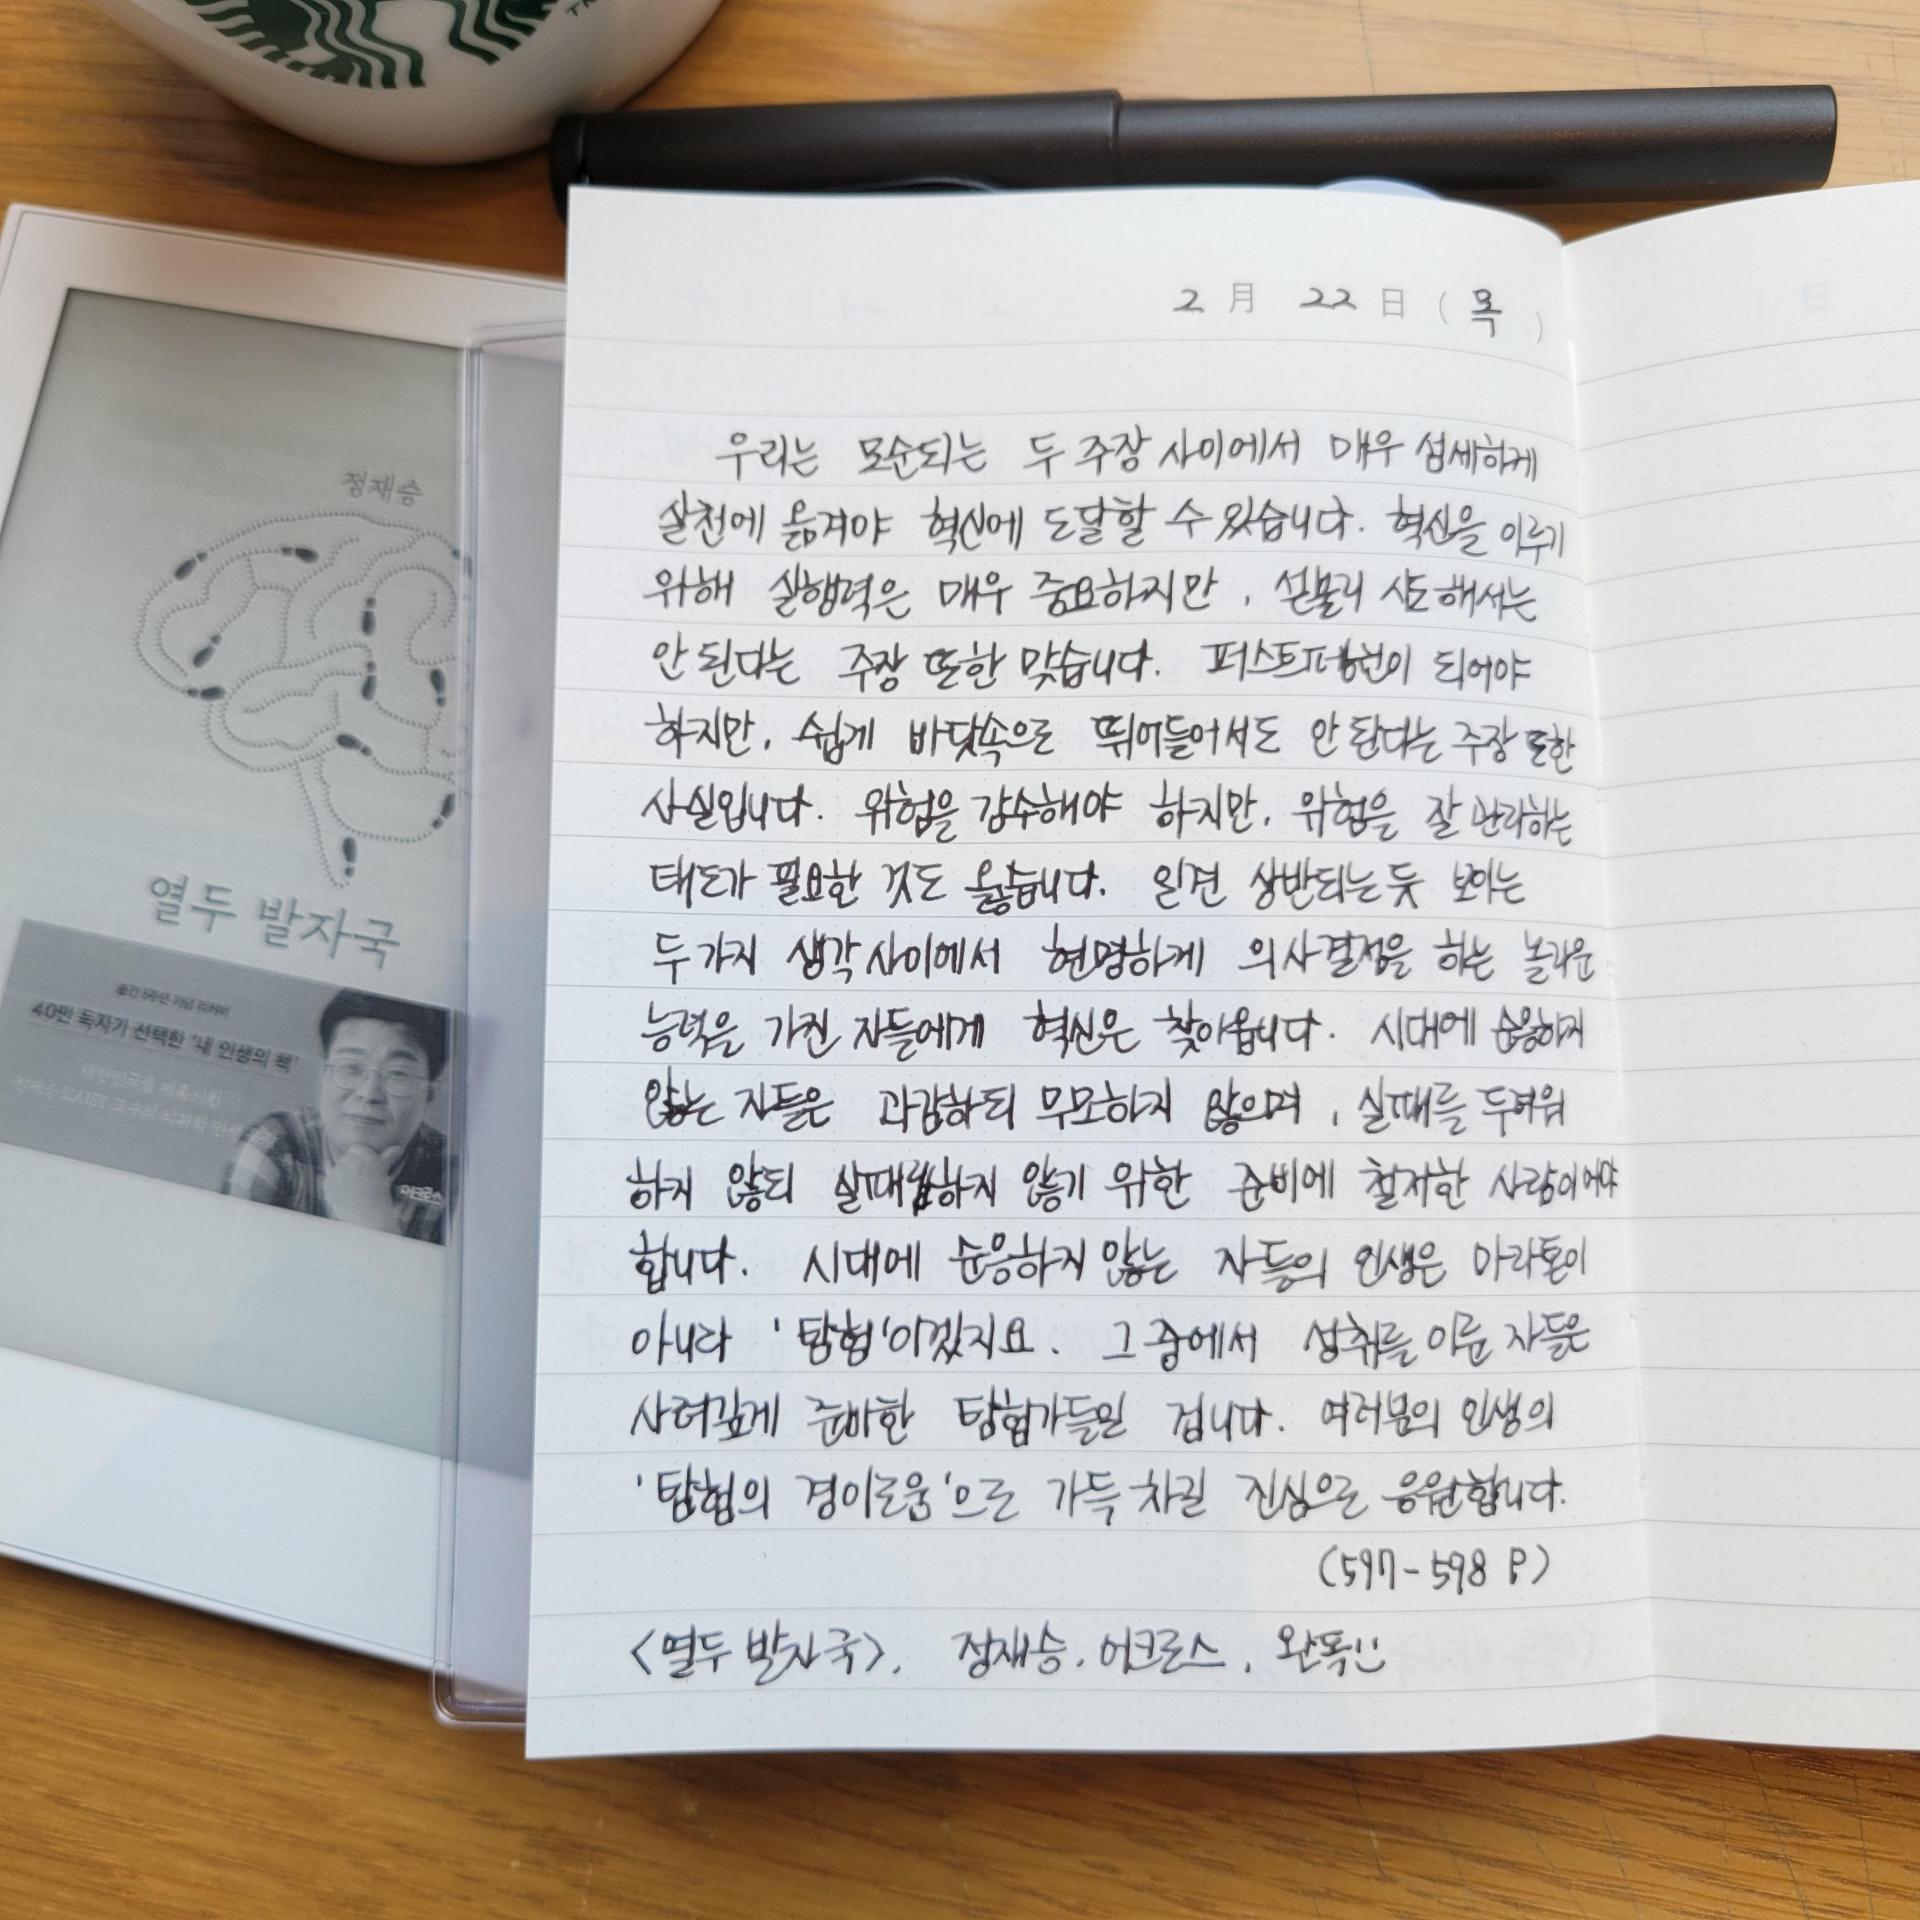 정재승
열두 발자국
출간 5주년 기념 리커버
40만 독자가 선택한 '내 인생의 책'
어크로스
2 月 22 日 ( 목 )
우리는 모순되는 두 주장 사이에서 매우 섬세하게
실천에 옮겨야 혁신에 도달할 수 있습니다. 혁신을 이루기
위해 실행력은 매우 중요하지만, 섣불리 시도해서는
안 된다는 주장 또한 맞습니다. 퍼스트펭귄이 되어야
하지만, 쉽게 바닷속으로 뛰어들어서도 안 된다는 주장 또한
사실입니다. 위험을 감수해야 하지만, 위험을 잘 관리하는
태도가 필요한 것도 옳습니다. 일견 상반되는 듯 보이는
두 가지 생각 사이에서 현명하게 의사결정을 하는 놀라운
능력을 가진 자들에게 혁신은 찾아옵니다. 시대에 순응하지
않는 자들은 과감하되 무모하지 않으며, 실패를 두려워
하지 않되 실패하지 않기 위한 준비에 철저한 사람이어야
합니다. 시대에 순응하지 않는 자들의 인생은 마라톤이
아니라 '탐험'이겠지요. 그 중에서 성취를 이룬 자들은
사려깊게 준비한 탐험가들일 겁니다. 여러분의 인생의
'탐험의 경이로움'으로 가득 차길 진심으로 응원합니다.
(597-598 P)
<열두 발자국>, 정재승, 어크로스, 완독!!